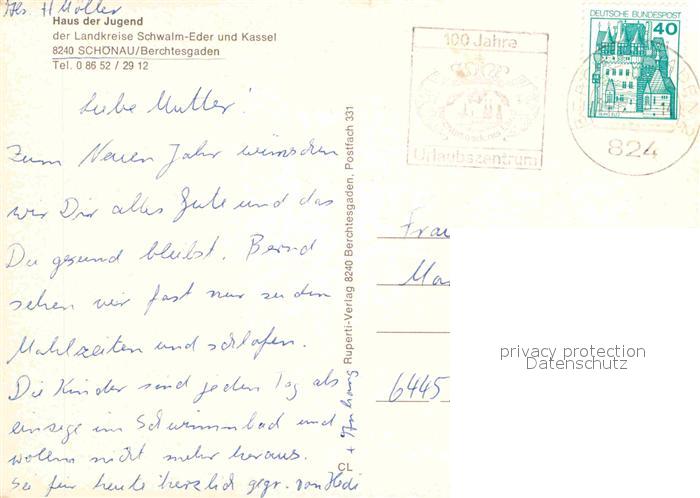 Abs. H Möller
Haus der Jugend
der Landkreise Schwalm-Eder und Kassel
8240 SCHÖNAU/Berchtesgaden
Tel. 0 86 52 / 29 12
Liebe Mutter!
Zum Neuen Jahr wünschen
wir Dir alles Gute und das
Du gesund bleibst. Bernd
sehen wir fast nur zu den
Mahlzeiten und schlafen.
Die Kinder sind jeden Tag als
einzige im Schwimmbad und
wollen nicht mehr heraus.
Sei für heute herzlich gegr. von Hedi
+ Anhang
CL
Ruperti-Verlag 8240 Berchtesgaden, Postfach 331
100 Jahre
Urlaubszentrum
DEUTSCHE BUNDESPOST
40
824
Frau
Ma
6445
privacy protection
Datenschutz